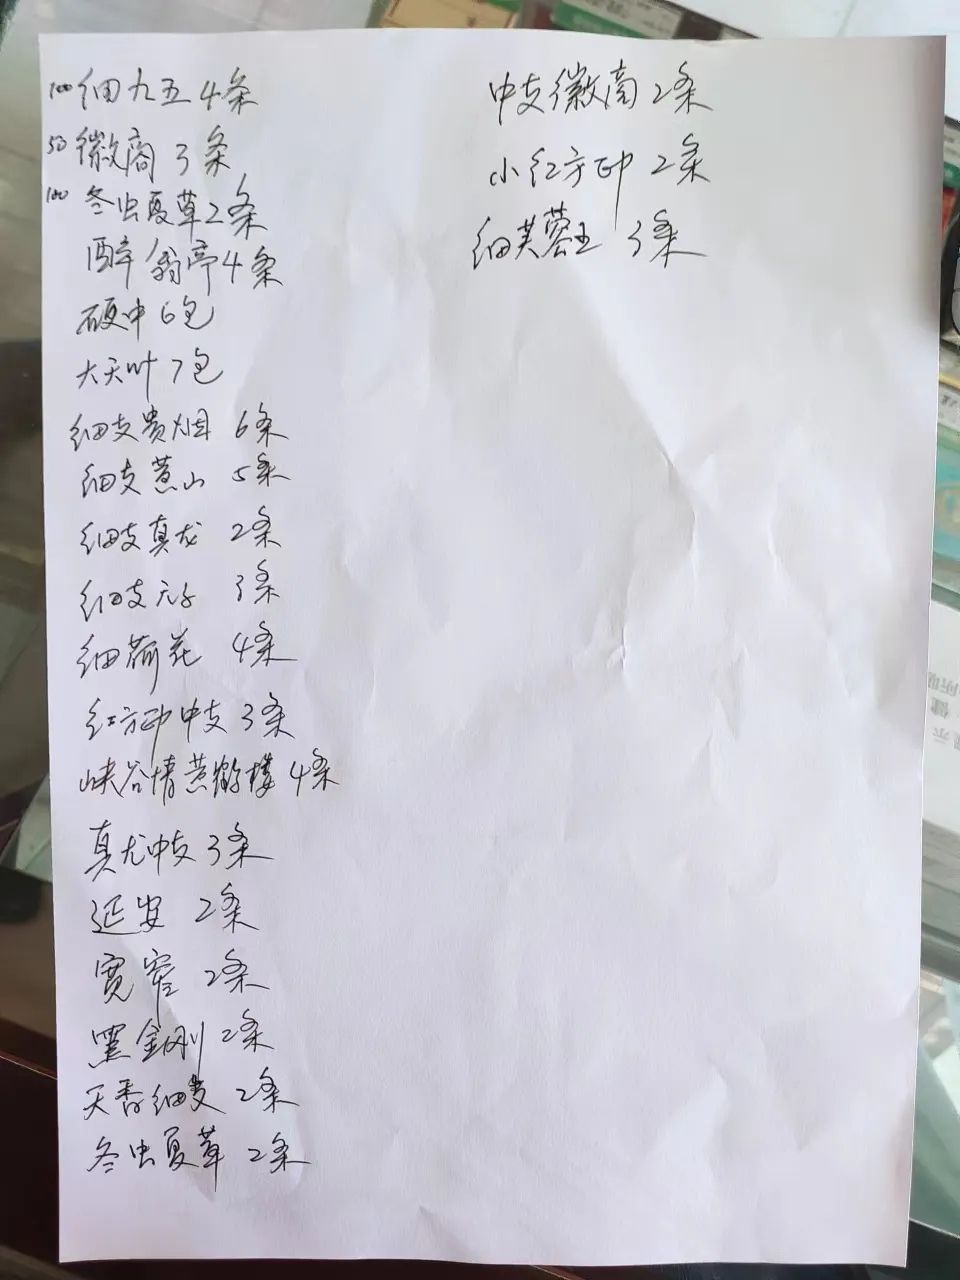 100 细九五 4条
50 徽商 3条
100 冬虫夏草 2条
醉翁亭 4条
硬中 6包
大天叶 7包
细支贵烟 6条
细支黄山 5条
细支真龙 2条
细支天子 3条
细荷花 4条
红方印中支 3条
峡谷情黄鹤楼 4条
真龙中支 3条
延安 2条
宽窄 2条
黑金刚 2条
天香细支 2条
冬虫夏草 2条
中支徽商 2条
小红方印 2条
细芙蓉王 3条